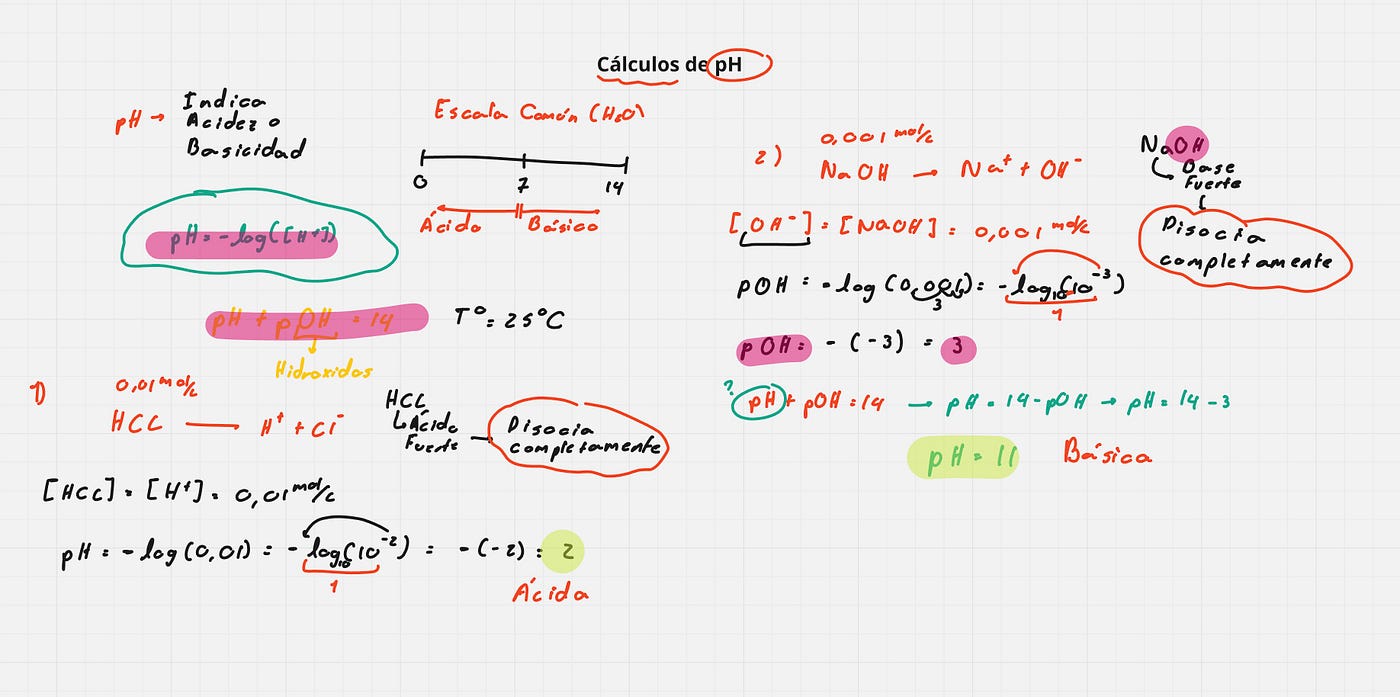 Cálculos de pH
pH → Indica
Acidez o
Basicidad
Escala Común (H₂O)
0 7 14
Ácido Básico
pH = -log([H⁺])
pH + pOH = 14
T° = 25°C
Hidroxidos
1)
0,01 mol/L
HCL → H⁺ + Cl⁻
HCL
Ácido
Fuerte → Disocia
completamente
[HCL] = [H⁺] = 0,01 mol/L
pH = -log(0,01) = -log₁₀(10⁻²) = -(-2) = 2
1
Ácida
2)
0,001 mol/L
NaOH → Na⁺ + OH⁻
NaOH
Base
Fuerte
Disocia
completamente
[OH⁻] = [NaOH] = 0,001 mol/L
pOH = -log(0,001) = -log₁₀(10⁻³)
3
1
pOH = -(-3) = 3
?
pH + pOH = 14 → pH = 14 - pOH → pH = 14 - 3
pH = 11 Básica